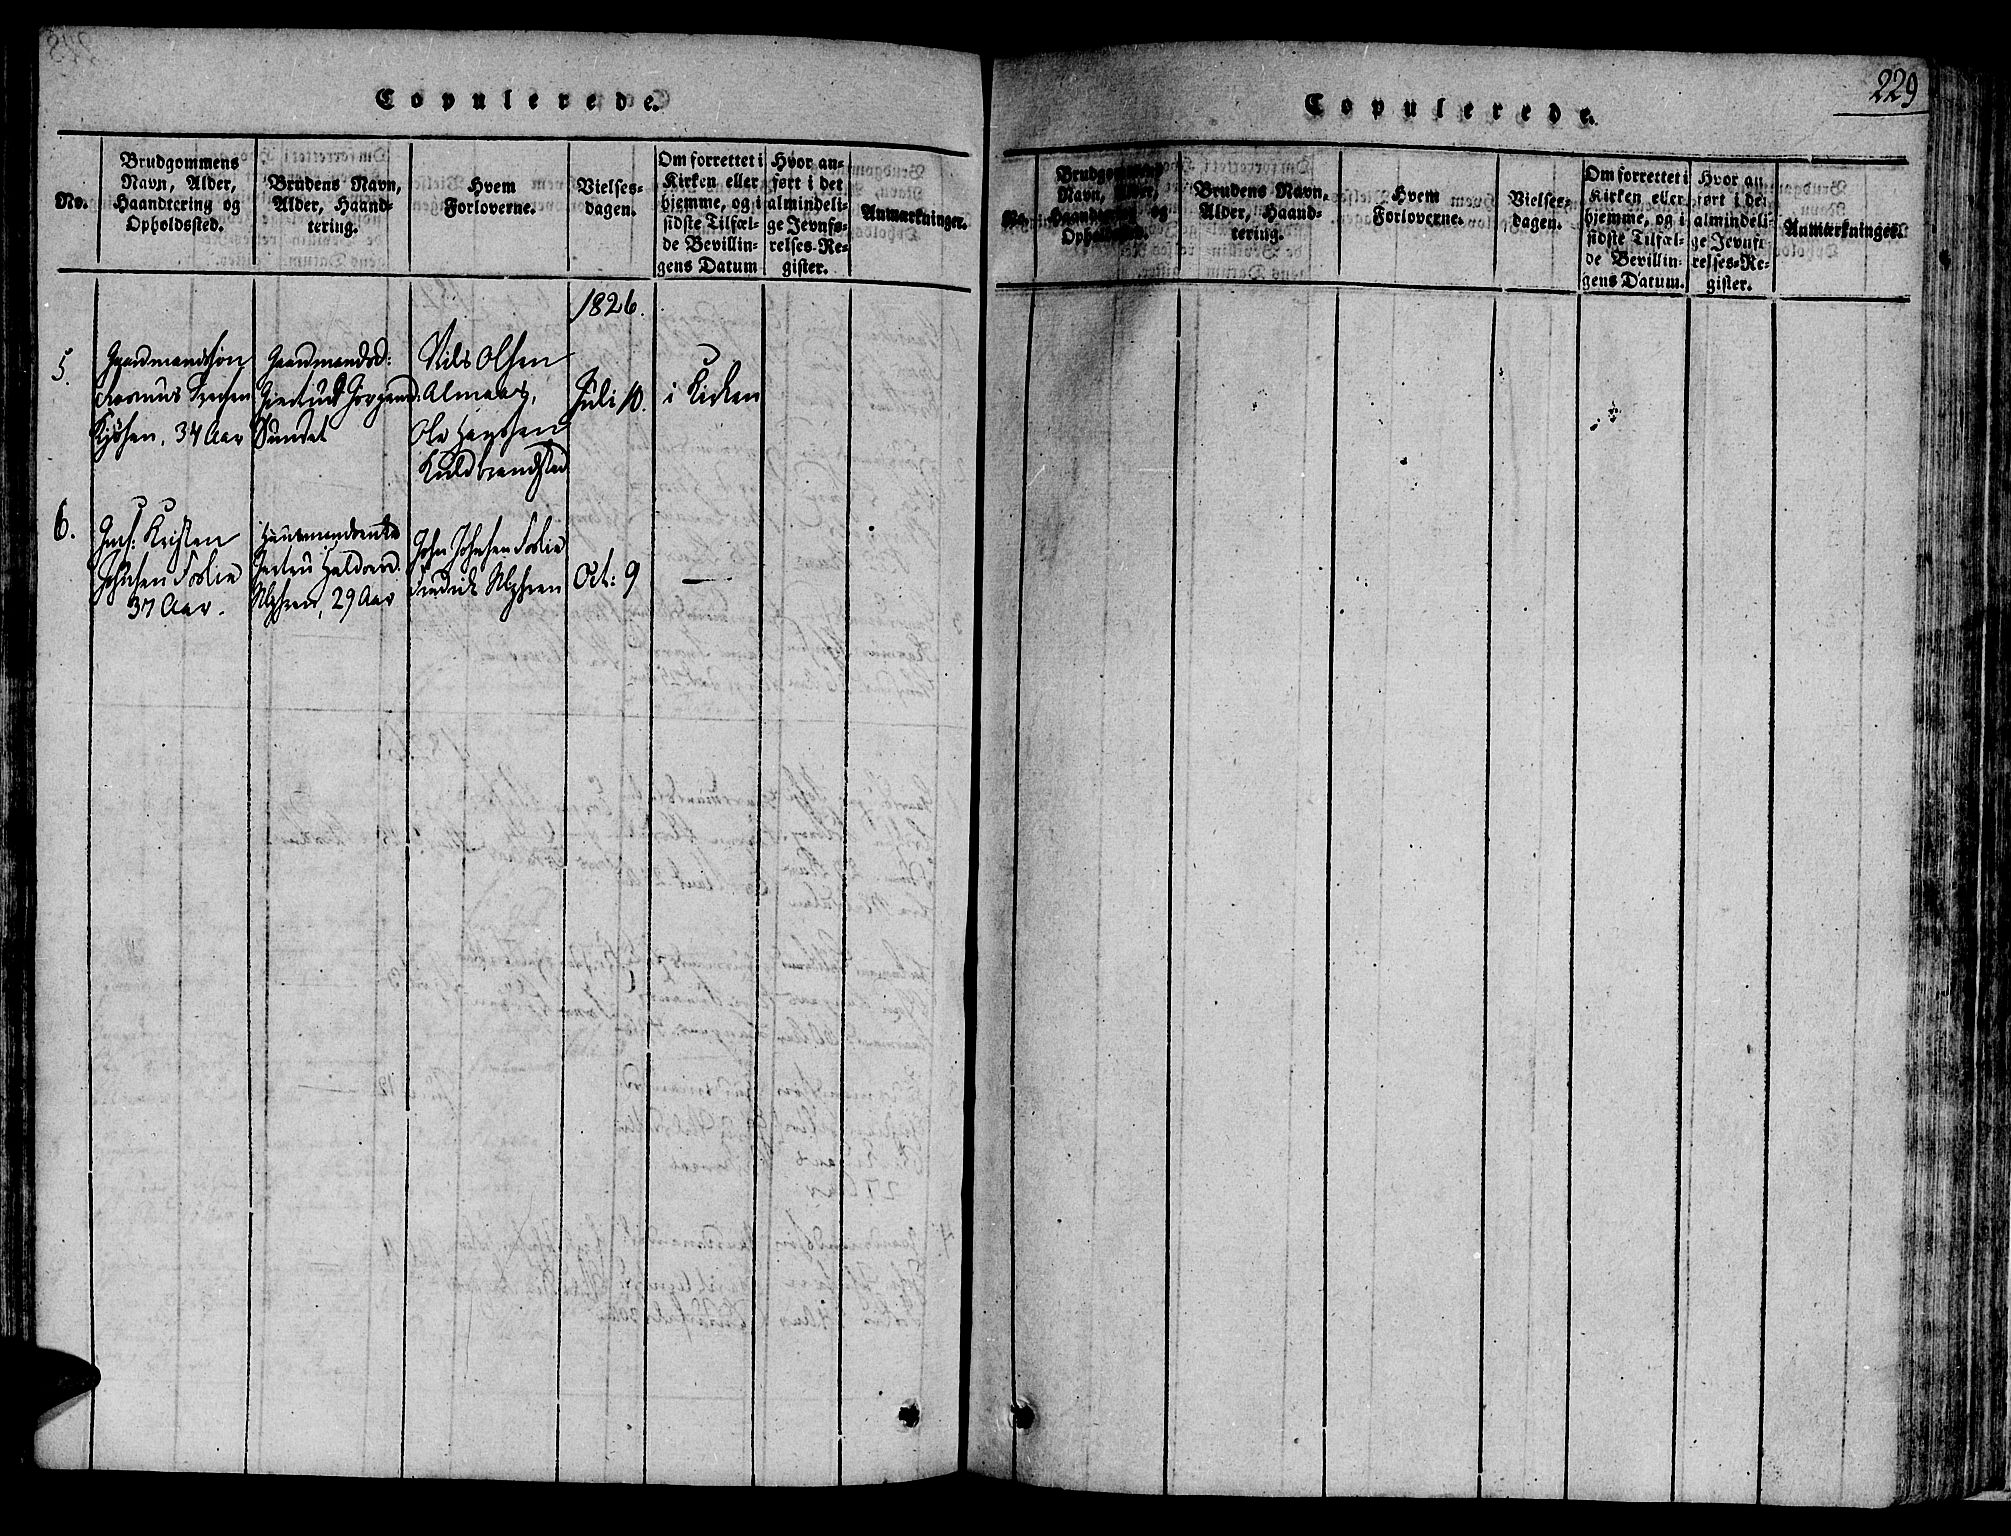 Copulerede.
No.
Brudgommens
Navn, Alder,
Haandtering og
Opholdssted.
Brudens Navn,
Alder, Haand-
tering.
Hvem
Forloverne.
Vielses-
dagen.
Om forrettet i
Kirken eller
hjemme, og i
sidste Tilfæl-
de Bevillin-
gens Datum
Hvor an-
ført i det
almindeli-
ge Jevnfø-
relses-Re-
gister.
Anmærkninger.
1826.
5.
Gaardmandssøn
Rasmus
34 Aar
Gaardmandsd:
Sundet
Nils Olsen
Almaas,
Ole
Kuldbrandsted
Juli 10.
i Kirken
6.
Kristen
Johnsen Foslie
37 Aar.
Haldord.
29 Aar
John Johnsen Foslie
Oct: 9
—
229
Copulerede.
No.
Brudgommens
Navn, Alder,
Haandtering og
Opholdssted.
Brudens Navn,
Alder, Haand-
tering.
Hvem
Forloverne.
Vielses-
dagen.
Om forrettet i
Kirken eller
hjemme, og i
sidste Tilfæl-
de Bevillin-
gens Datum.
Hvor an-
ført i det
almindeli-
ge Jevnfø-
relses-Re-
gister.
Anmærkninger.